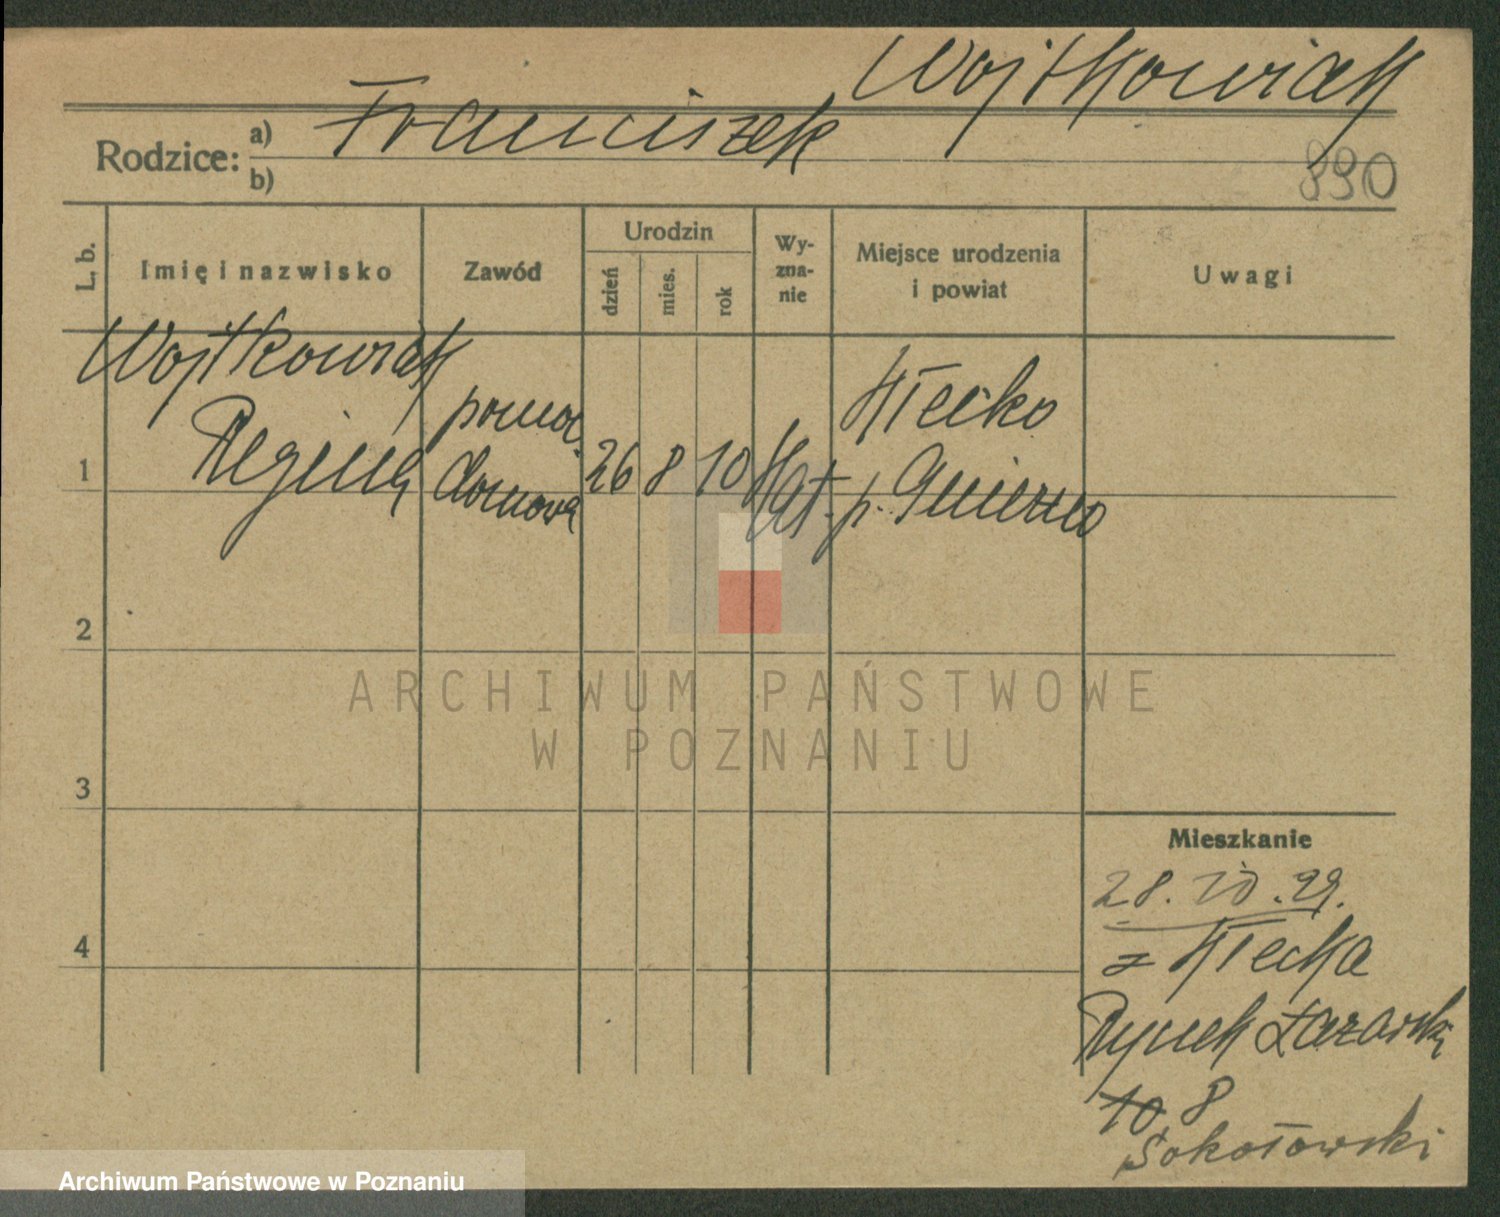 Wojtkowiak
Rodzice: a) Franciszek
b)
990
L. b.
Imię i nazwisko
Zawód
Urodzin
dzień
mies.
rok
Wy-
zna-
nie
Miejsce urodzenia
i powiat
Uwagi
Wojtkowiak
Regina
pomoc.
domowa
1
26
8
10
Kat.
Kłecko
p. Gniezno
2
3
4
Mieszkanie
28.10.29.
z Kłecka
Rynek Łazarski
10 8
Sokołowski
ARCHIWUM PAŃSTWOWE
W POZNANIU
Archiwum Państwowe w Poznaniu